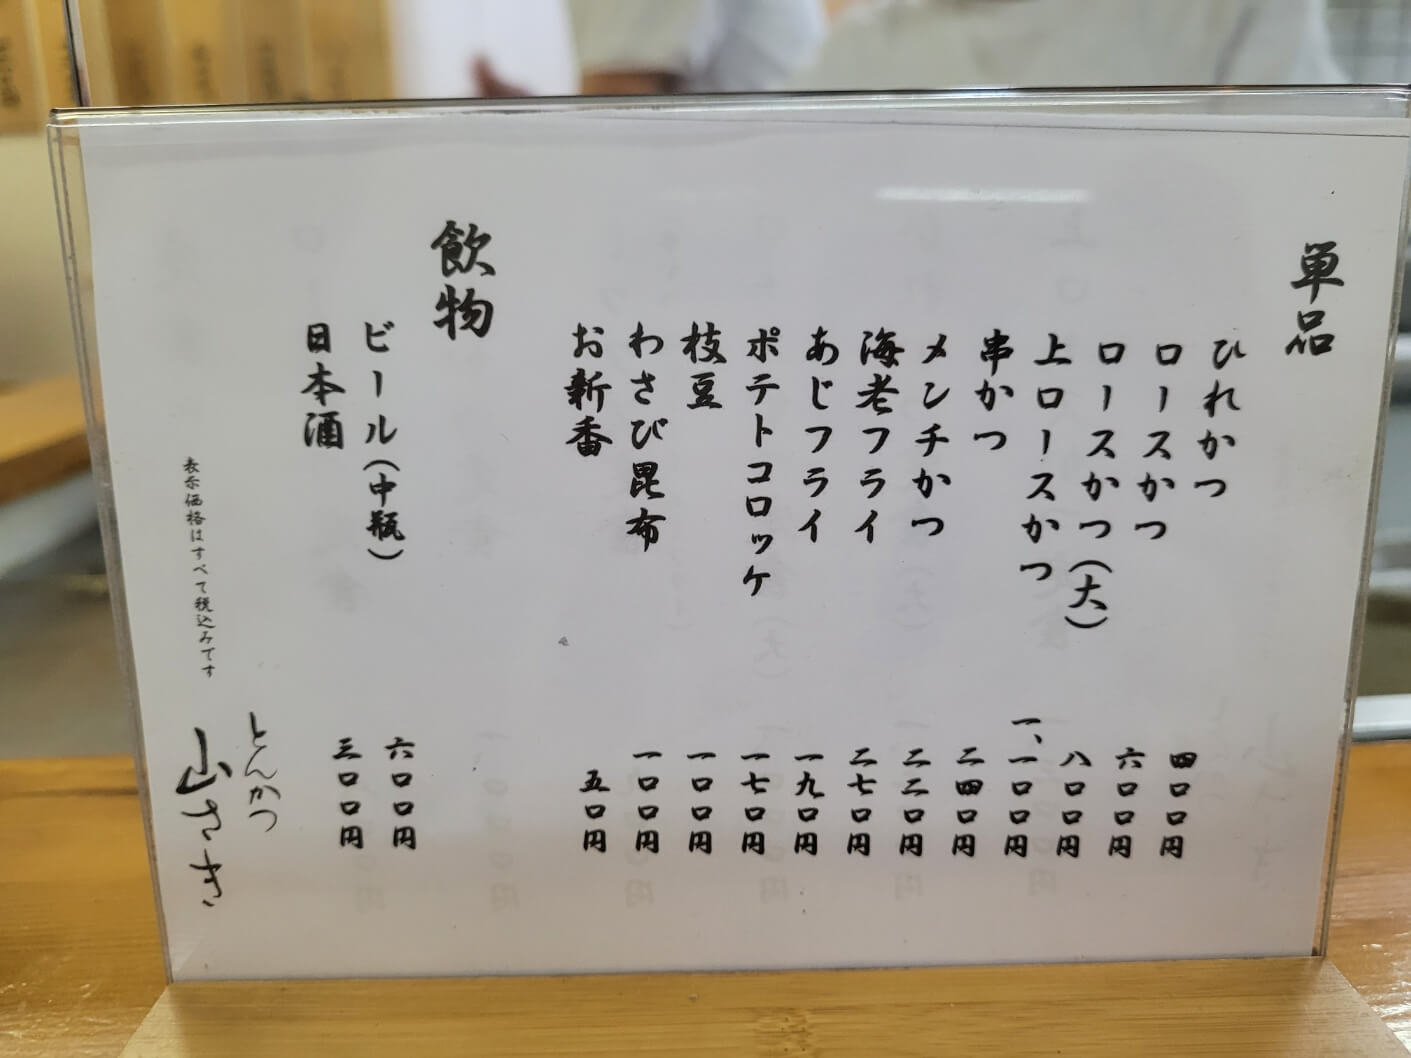 単品
ひれかつ 四〇〇円
ロースかつ 六〇〇円
ロースかつ(大) 八〇〇円
上ロースかつ 一、一〇〇円
串かつ 二四〇円
メンチかつ 二三〇円
海老フライ 二七〇円
あじフライ 一九〇円
ポテトコロッケ 一七〇円
枝豆 一〇〇円
わさび昆布 一〇〇円
お新香 五〇円
飲物
ビール(中瓶) 六〇〇円
日本酒 三〇〇円
表示価格はすべて税込みです
とんかつ
山さき